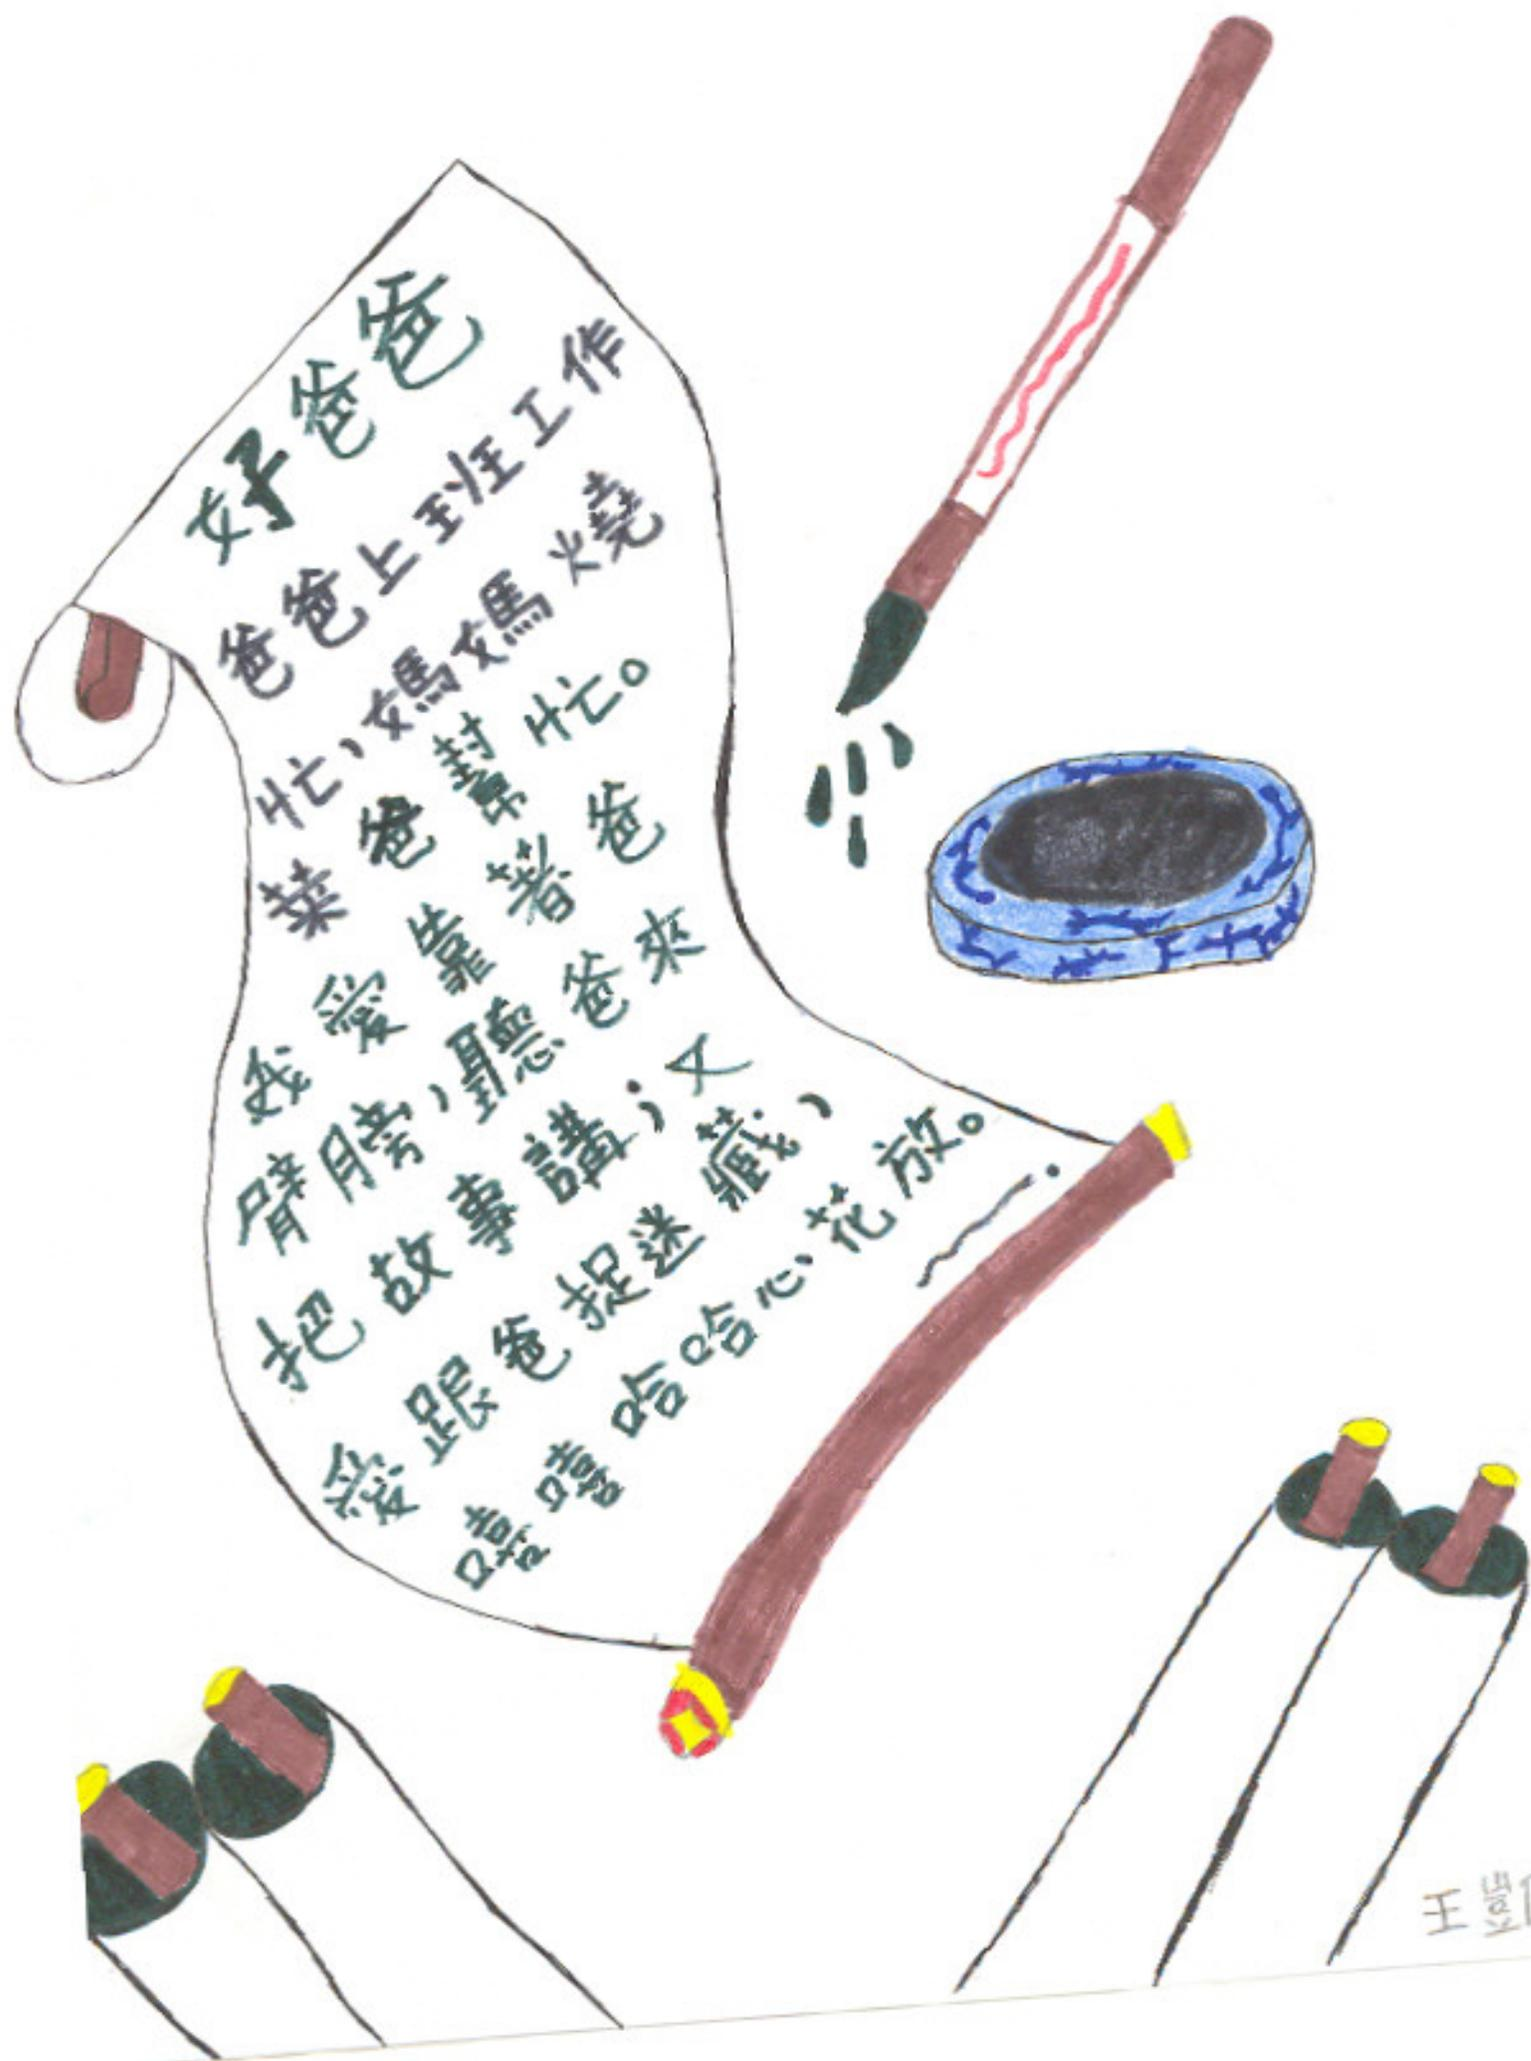 好爸爸
爸爸上班工作
忙，媽媽燒
菜爸幫忙。
我愛靠著爸
臂膀，聽爸來
把故事講；又
愛跟爸捉迷藏，
嘻嘻哈哈心花放。
王